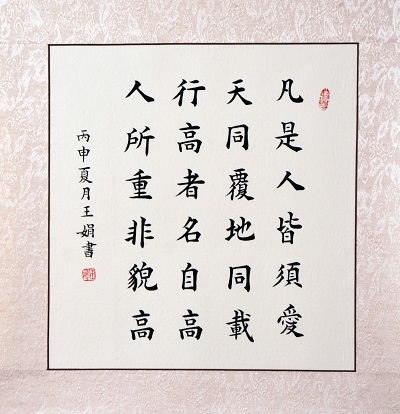 凡是人皆須愛
天同覆地同載
行高者名自高
人所重非貌高
丙申夏月王娟書